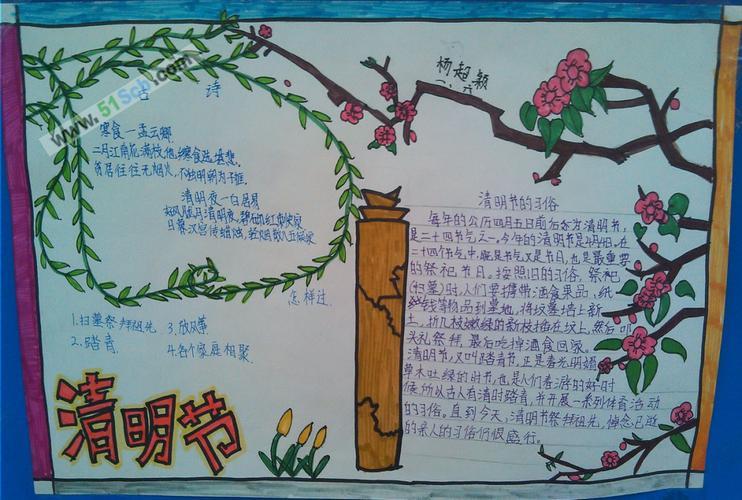 www.51Scb.com
古 诗
寒食一孟云卿
二月江南花满枝,他乡寒食远堪悲。
贫居往往无烟火,不独明朝为子推。
清明夜一白居易
好风胧月清明夜,碧砌红轩刺史家
日暮汉宫传蜡烛,轻烟散入五侯家
怎样过
1.扫墓祭拜祖先 3.放风筝
2.踏青 4.各个家庭相聚
清明节
杨超颖
一、六
清明节的习俗
每年的公历四月五日前后为清明节,
是二十四节气之一。今年的清明节是4月4日。在
二十四个节气中,既是节气又是节日,也是最重要
的祭祀节日。按照旧的习俗,祭祀
(扫墓)时,人们要携带酒食果品,纸
钱等物品到墓地,将坟墓培上新
土,折几枝嫩绿的新枝插在坟上,然后叩
头礼祭拜,最后吃掉酒食回家。
清明节,又叫踏青节,正是春光明媚
草木吐绿的时节,也是人们春游的好时
候,所以古人有清明踏青,并开展一系列体育活动
的习俗。直到今天,清明节祭拜祖先,悼念已逝
的亲人的习俗仍很盛行。